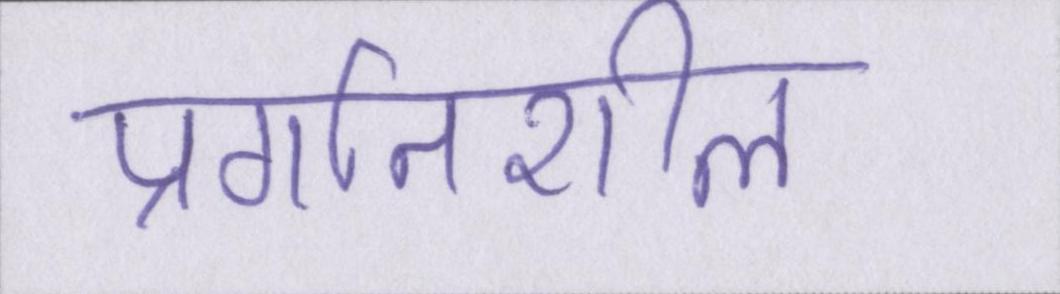 प्रगतिशील